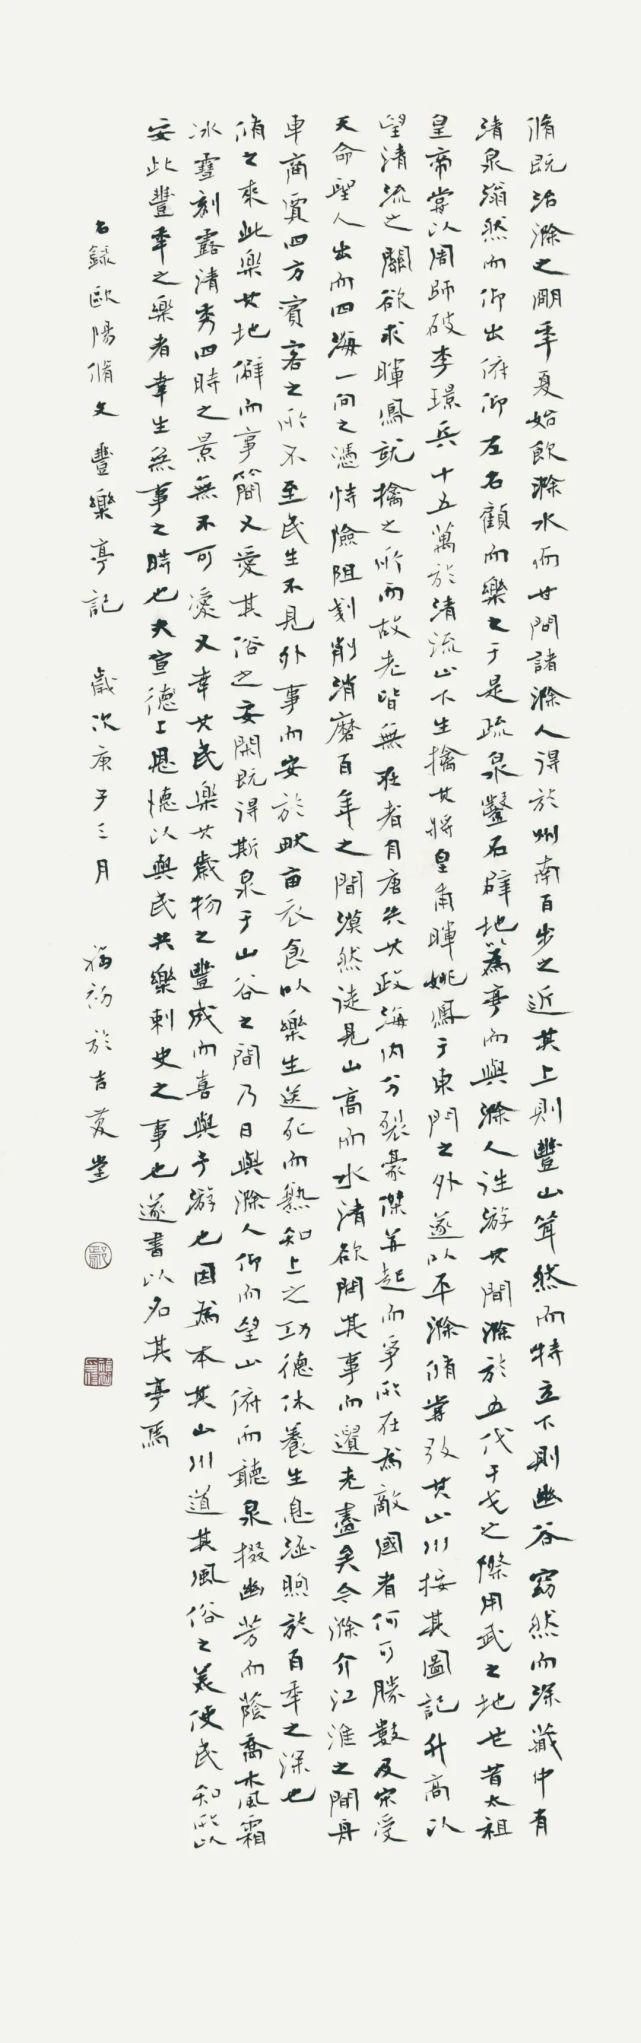 脩既治滁之眀年夏始飲滁水而甘問諸滁人得於州南百步之近其上則豐山聳然而特立下則幽谷窈然而深藏中有
清泉滃然而仰出俯仰左右顧而樂之于是疏泉鑿石辟地以為亭而與滁人往游其間滁於五代干戈之際用武之地也昔太祖
皇帝嘗以周師破李璟兵十五萬於清流山下生擒其將皇甫暉姚鳳于東門之外遂以平滁脩嘗考其山川按其圖記升高以
望清流之關欲求暉鳳就擒之所而故老皆無在者自唐失其政海內分裂豪傑并起而爭所在為敵國者何可勝數及宋受
天命聖人出而四海一向之憑恃險阻剗削消磨百年之間漠然徒見山高而水清欲問其事而遺老盡矣今滁介江淮之間舟
車商賈四方賓客之所不至民生不見外事而安於畎畝衣食以樂生送死而孰知上之功德休養生息涵煦於百年之深也
脩之來此樂其地僻而事簡又愛其俗之安閑既得斯泉于山谷之間乃日與滁人仰而望山俯而聽泉掇幽芳而蔭喬木風霜
冰雪刻露清秀四時之景無不可愛又幸其民樂其歲物之豐成而喜與予游也因為本其山川道其風俗之美使民知所以
安此豐年之樂者幸生無事之時也夫宣德上恩德以與民共樂刺史之事也遂書以名其亭焉
右錄歐陽脩文豐樂亭記 歲次庚子三月 福初於吉 堂